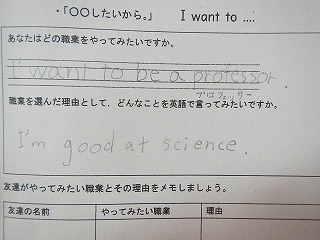 ・「〇〇したいから。」 I want to ….
あなたはどの職業をやってみたいですか。
I want to be a professor.
プロフェッサー
職業を選んだ理由として、どんなことを英語で言ってみたいですか。
I'm good at science.
友達がやってみたい職業とその理由をメモしましょう。
友達の名前 やってみたい職業 理由